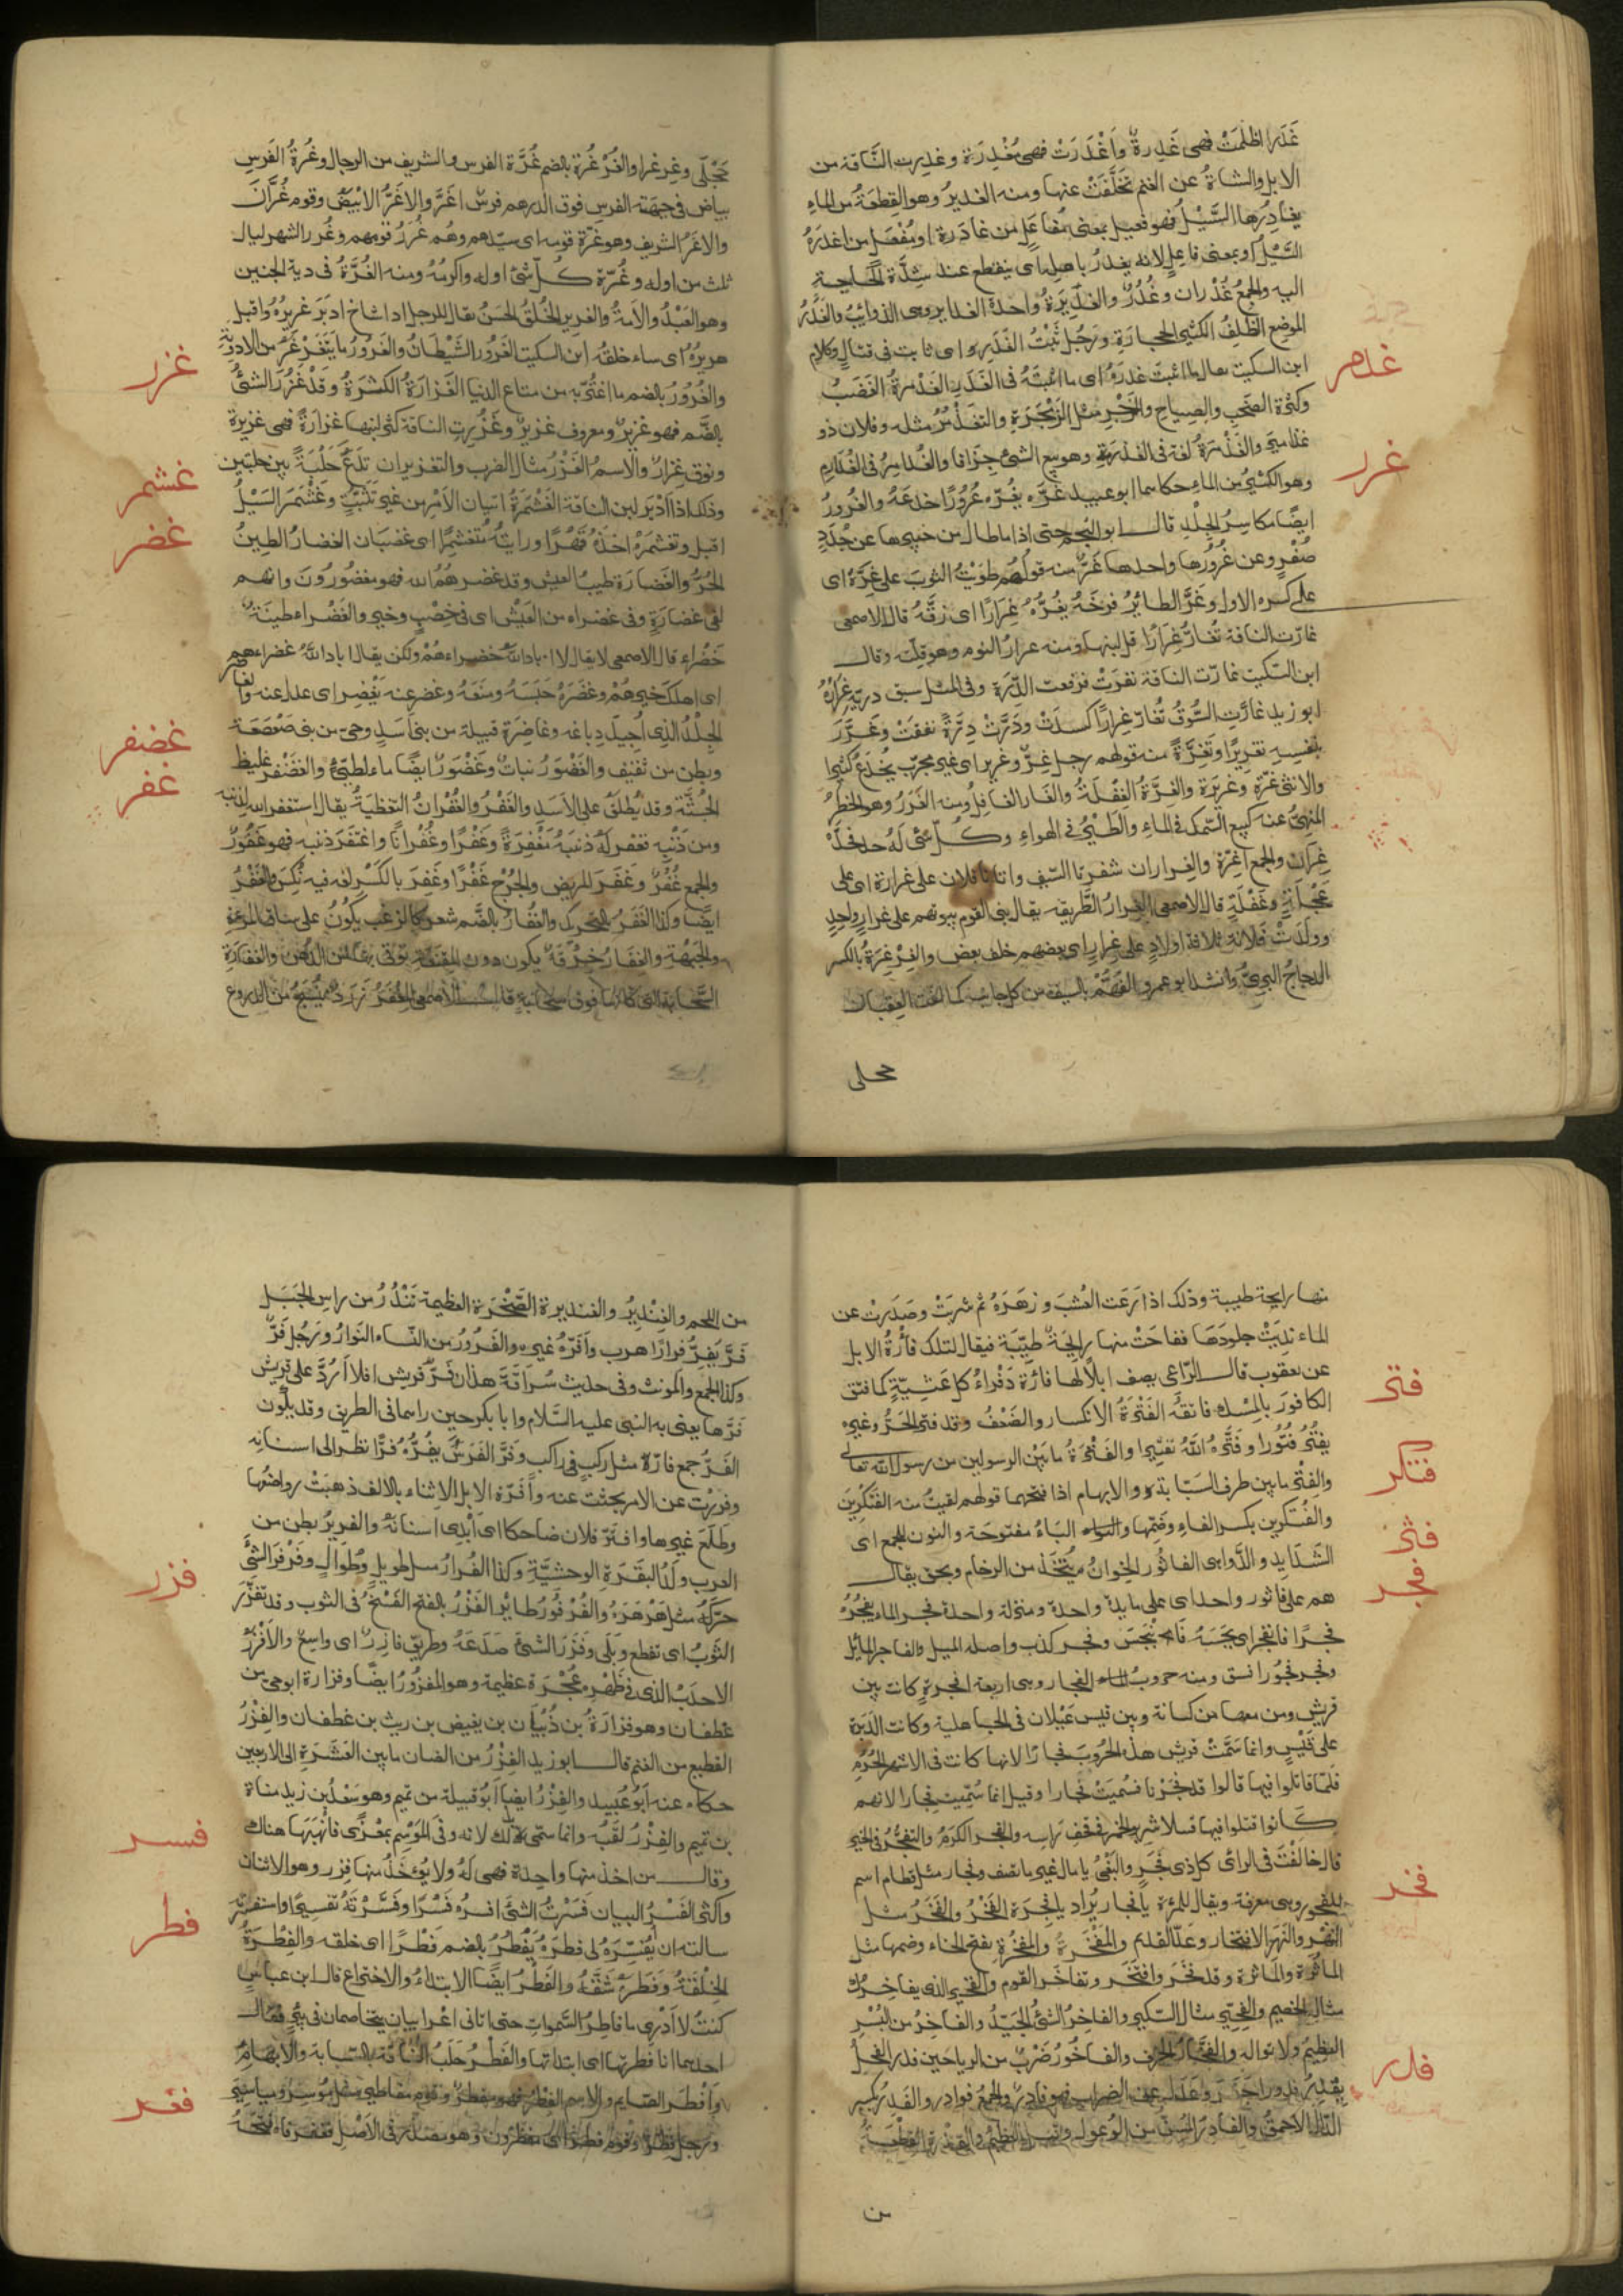 غَدَرا اظلمَتْ فهى غَدِرةٌ وَاَغْدَرَتْ فهى مُغْدِرَة وغدِرت النَّاقة من
الابل والشاةُ عن الغنم تخلَّفَتْ عنها ومنه الغديرُ وهو القِطعَةُ من الماءِ
يغادِرُها السَّيْلُ فهو فعيل بمعنى مُفاعَلٍ من غادَرة او مُفْعَلٍ من اغدَرَهُ
السَّيْلُ او بمعنى فاعِلٍ لانه يغدرُ باهلِه اى ينقطع عند شِدَّةِ الحاجةِ
اليه والجمعُ غُدْران وغُدُرٌ والغَدِيْرَةُ واحدة الغداير وهى الذوائبُ والغَدَرُ
الموضع الظَلِفُ الكثير الحجارَةِ ورَجُل ثَبْتُ الغَدَرِ اى ثابت فى قتالٍ وكلامٍ
غذمر
ابن السكيت يقال ما اثبتَ غدرَهُ اى ما اثبتَهُ فى الغَدَرِ الغَذْمرةُ الغَضَبُ
وكثرة الصَّخَبِ والصِياحِ والزَّجْرِ مثل الزَمْجَرَةِ والتغَذْمُرُ مثله وفلان ذو
غذاميرَ والغَذْمَرةُ لغة فى الغذرَمَةِ وهو بيع الشئ جِزَافا والغُذامِرُ فى الغُذَارِمِ
غرر
وهو الكثيرُ من الماءِ حكاهما ابو عبيد غَرَّه يغُرّه غُرُورًا خدعَهُ والغُرورُ
ايضًا مكاسِرُ الجِلْدِ قال ابو النجم حتى اذا ما طال من خبيرها عن جُدَدٍ
صُفْرٍ وعن غُرُورها واحدها غَرٌّ منه قولهم طوَيْتُ الثوبَ على غَرِّهِ اى
على كسره الاول وغَرَّ الطائرُ فرخَهُ يغُرُّهُ غِرَارًا اى زقَّهُ قال الاصمعى
غارّت الناقة تُغارُّ غِرَارًا قل لبنها ومنه غرارُ النوم وهو قِلّته وقال
ابن السكيت غارّت الناقة نفرَتْ فرفعت الدِّرَة وفى المثل سبق درتَه غِرَارُهُ
ابو زيد غارَّتِ السُّوقُ تُغارّ غِرارًا كسدَتْ ودَرَّتْ دِرَّةً نفقتْ وغرَّرَ
بنفسِهِ تغريرًا وتَغِرَّةً منه قولهم رجل غِرٌّ وغرير اى غير مجرّب يُخدَعُ كثيرا
والانثى غِرّة وغريرَة والغِرَّةُ الغِفْلَةُ والغَار الغافِلُ ومنه الغَرَرُ وهو الخطرُ
المنهىُّ عنه كبيع السّمك فى الماءِ والطَّيْرُ فى الهواءِ وكلّ شئ لَهُ حد فحدُّه
غِرَارٌ والجمع اغِرّة والغِراران شفرتا السّيف واتانا فلان على غرارة اى على
عَجْلَةٍ وغَفْلَةٍ قال الاصمعى الغِرارُ الطَّريقه يقال بنى القوم بيوتهم على غرارٍ واحدٍ
وولَدَتْ فلانة ثلاثة اولادٍ على غِرارٍ اى بعضهم خلف بعض والغِرْغِرَةُ بالكسر
الدجاجُ البرىُّ وانشد ابو عمرو الفهُّم بالسيف من كل جانب كما لفت العِقبان
حجلى
حَجْلَى وغِرغرا والغُرّ غُرة بالضم غُرَّة الفرس والشريف من الرجال وغُرةُ الفَرسِ
بياض فى جبهته الفرس فوق الدرهم فرسٌ اغَرُّ والاغَرُّ الابْيَضُ وقوم غُرَّان
والاغَرُّ الشريف وهو غُرّة قومه اى سيّدهم وهُم غُرَرُ قومهم وغُررُ الشهر ليال
ثلث من اوله وغُرّة كلّ شئ اوله واكرمُهُ ومنه الغُرَّةُ فى دية الجنين
وهو العَبْدُ والاَمةُ والغرير الخُلقُ الحسَنُ يقال للرجل اذا شاخ ادبَرَ غريرُهُ واقبل
هريرُهُ اى ساء خلقُه ابن السكيت الغَرُور الشَّيْطَانُ والغَرُورُ ما يَتغَرْغَرُ من الادويةِ
غزر
والغُرُورُ بالضم ما اغْتُرَّ به من متاع الدنيا الغَزارَةُ الكثرَةُ وقدْ غَزُرَ الشئُ
بالضَّم فهو غزيرٌ ومعروف غزيرٌ وغَزُرت الناقة كثر لبنها غزارةً فهى غزيرة
ونوق غِزارٌ والاسم الغَزْرُ مثال الضرب والتغزيران تَدَعَ حَلْبَةً بين حلبتين
غشمر
وذلك اذا اَدْبَرَ لبن الناقة الغَشْمَرَةُ اتيان الاَمْرِ من غير تَثَبُّتٍ وغَشْمَرَ السَيْلُ
غضر
اقبل وتغشمرَهُ اخذَهُ قَهْرًا ورايتُهُ مُتغشْمِرًا اى غضبَان الغضارُ الطينُ
الحُرُّ والغَضارَة طيبُ العيش وقد غضرهُمُ الله فهو مغضُورُونَ وانهم
لفى غضارَةٍ وفى غضراء من العَيْشِ اى فى خِصْبٍ وخيرٍ والغَضْراء طينَةٌ
خَضْراء قال الاصمعى لا يقال اباد اللهُ خضراءهُمْ ولكن يقال اباد اللهُ غضراءهم
اى اهلكَ خيرهُمْ وغضَرَهُ حَبَسَهُ ومنعَهُ وغضر عنه يَغْضِر اى عدل عنه والغاضر
الجِلْدُ الذى اُجِيدَ دِباغه وغاضِرَة قبيلة من بنى اَسَدٍ وحىّ من بنى صَعْصَعَة
غضنفر
وبطن من ثقيف والغَضْوَرُ نباتٌ وغَضْوَرُ ايضًا ماء لطيّئ والغضَنْفَر غليظ
غفر
الجُثَّة وقد يُطلَقُ على الاَسَدِ والغَفْرُ والغُفْرانُ التغطيَةُ يقال استغفر الله لذنبه
ومن ذَنْبِه فغفر لَهُ ذنبَهُ مَغْفِرَةً وغَفْرًا وغُفْرانًا واغتفَرَ ذنبه فهو غَفُورٌ
والجمع غُفُرٌ وغفَرَ المريض والجُرْح غفْرًا وغفِرَ بالكَسْرِ لغه فيه نُكِسَ والغَفْرُ
ايضًا وكذا الغَفَرُ بالتحريك والغُفارُ بالضَّم شعرٌ كالزغب يكوُنُ على ساق المرءة
والجَبْهة والغِفارَةُ خِرْقَةٌ يكون دون المِقنعة توَقّى بها من الدُّهن والغفارَةِ
السَّحابَة التى كانها فوق سحابةٍ قال الاصمعى المِغْفَرُ زرَدٌ يُنْسَجُ من الدروع
منها رايحة طيبة وذلك اذا رَعَت العُشبَ وزهَرَهُ ثم شرِبَتْ وصَدَرتْ عن
الماء نَدِيَتْ جلودُهَا ففاحَتْ منها رايحَةٌ طيِّبَة فيقال لتلك فأرةُ الابل
عن يعقوب قال الرّاعى يصف ابلاً لها فأرَة ذَفْراءُ كل عَشِيّةٍ كما فتق
فتر
الكافورَ بالمِسْكِ فاتقهُ الفَتْرَةُ الانكسار والضَعْفُ وقد فتر الحَرُّ وغيره
يفْتُرُ فُتُورًا وفتَّرهُ اللهُ تفتيرا والفَتْرَةُ ما بَيْنَ الرسولين من رسول الله تعالى
فتكر
والفِتْرُ ما بين طرف السَبّابة والابهام اذا فتحهما قولهم لقيتُ منه الفِتَكْرِينَ
والفُتَكْرين بكسر الفاءِ وضَمّها والتاءُ مفتوحَة والنون للجمع اى
فثر
الشدَايد والدَّواهى الفاثُور الخِوانُ مُتّخَذ من الرخام ونحوه يقال
فجر
هم على فاثور واحد اى على مايدة واحدة ومنزلة واحدة فجر الماء يفجُرُ
فجرًا فانفجر اى بجَسَهُ فانبجَسَ وفجر كذب واصله الميل والفاجر المائل
وفجر فجُورا فسق ومنه حروبُ الفجار وهى اربعة افجرةٍ كانت بين
قريش ومن معها من كنانة وبين قيس عَيْلان فى الجاهلية وكانت الدَبرة
على قيْسٍ وانما سَمَّتْ قريش هذه الحُروبَ فجارًا لانها كانت فى الاشهر الحُرُم
فلمّا قاتلوا فيها قالوا قد فجَرْنا فسُميَتْ فجارا وقيل انما سُمّيت فجارا لانهم
قال خالَفْتَ فى الرائ كل ذى فجَرٍ والبَغْىُ يا مال غير ما تصف وفجار مثل قطام اسم
فخر
للفجور وهى معرفة ويقال للمرءة يا فجار يُراد يا فجِرَة الفَخْرُ والفَخَرُ مثل
النَّهْر والنَّهَر الافتخار وعدّ القديم والمَفْخَرَةُ والمفخُرة بفتح الخاء وضمها مثل
الماثُرة والماثَرة وقد فخَر وافتَخَر وتفاخَر القوم والفخير الذى يفاخِرُك
مثال الخصيم والفِخّير مثال السّكير والفاخِرُ الشئُ الجَيّدُ والفاخِرُ من البُسْرِ
العظيمُ ولا نوى له والفَخّارُ الخزف والفاخُورُ ضَرْبٌ من الرياحين
فدر
فدر الفحلُ
من
من اللحم والفِنْدِيْرُ والفنديرة الصَّخْرَة العظيمة تَنْدُرُ من راس الجَبَل
فَرَّ يَفِرُّ فرارًا هرب وأفَرَّهُ غيره والفَرُورُ من النّساء النَوارُ ورَجُل فَرٌّ
وكذا الجمع والمونث وفى حديث سُرَاقَةَ هذان فَرُّ قريش افلا اَرُدُّ على قريش
فَرَّها يعنى به النبى عليه السّلام وابا بكر حين راهما فى الطريق وقد يكُون
الفَرُّ جمع فارّة مثل ركب فى راكبٍ وفَرَّ الفَرَسَ يفُرُّهُ فَرًّا نظر الى اسنانه
وفررْت عن الامر بحثت عنه واَفَرّت الابل الاثناء بالالف ذهبَتْ رواضعُها
وطَلَعَ غيرها وافتَرّ فلان ضاحكا اى اَبْدى اسنانَهُ والفريرُ بطن من
العرب ولَدُ البقَرَةِ الوحشيّةِ وكذا الفُرارُ مثل طويلٍ وطُوالٍ وفَرْفَرَ الشئَ
فزر
حرّكهُ مثل هَرْهَرَهُ والفُرْفُورُ طايْر الفَزْرُ بالفتح الفَسْخُ فى الثوب وقد تفزَّر
الثوبُ اى تقطع وبَلَى وفَزَرَ الشئَ صَدَعَهُ وطريق فازِرٌ اى واسعٌ والاَفْزَرُ
الاحدَبُ الذى فى ظَهْرِه عُجْرَة عظيمة وهو المفزُورُ ايضًا وفزارة ابو حىّ من
غطفان وهو فزارَةُ بن ذُبْيَان بن بغيض بن ريث بن غطفان والفِزْرُ
القطيع من الغنم قال ابو زيد الفِزْرُ من الضان ما بين العَشَرَةِ الى الاربعين
حكاه عنه اَبو عُبَيد والفِزْرُ ايضًا اَبُو قبيلة من تميم وهو سَعْدُ بن زيد مناة
بن تميم والفِزْرُ لقبُهُ وانما سُمّى بذلك لانه وفى المَوْسِم بمَعْزًى فانْهَبَهَا هناك
وقال من اخذ منها واحدة فهى لَهُ ولا يُؤخَذُ منها فِزر وهو الاثنان
فسر
واكثر الفَسْرُ البيان فَسَرْتُ الشئَ افسرهُ فَسْرًا وفَسَّرْتَهُ تفسيرًا واستفسرته
فطر
سالته ان يُفسّرَه لى فطرَهُ يَفْطُرُ بالضم فَطْرًا اى خلقه والفِطْرَةُ
الخِلْقَةُ وفَطَرَهُ شقَّهُ والفَطْرُ ايضًا الابتداءُ والاختراع قال ابن عباسٍ
كنتُ لا اَدْرى ما فاطِرُ السّمواتِ حتى اتانى اعْرابيان يختصمان فى بئرٍ فقال
احدهما انا فطرتها اى ابتداتها والفَطْرُ حَلَبُ النّاقة بالسّبابة والابهامِ
وأفْطَرَ الصّايم والاسم الفِطْرُ فهو مفطِرٌ وقوم مفاطير مثل مُوسر ومياسير
فقر
ورجل فِطْرٌ وقوم فِطْرٌ اى مفطرون وهو مصْدر فى الاَصْلِ فغَفَرَ فاهُ فتحَهُ